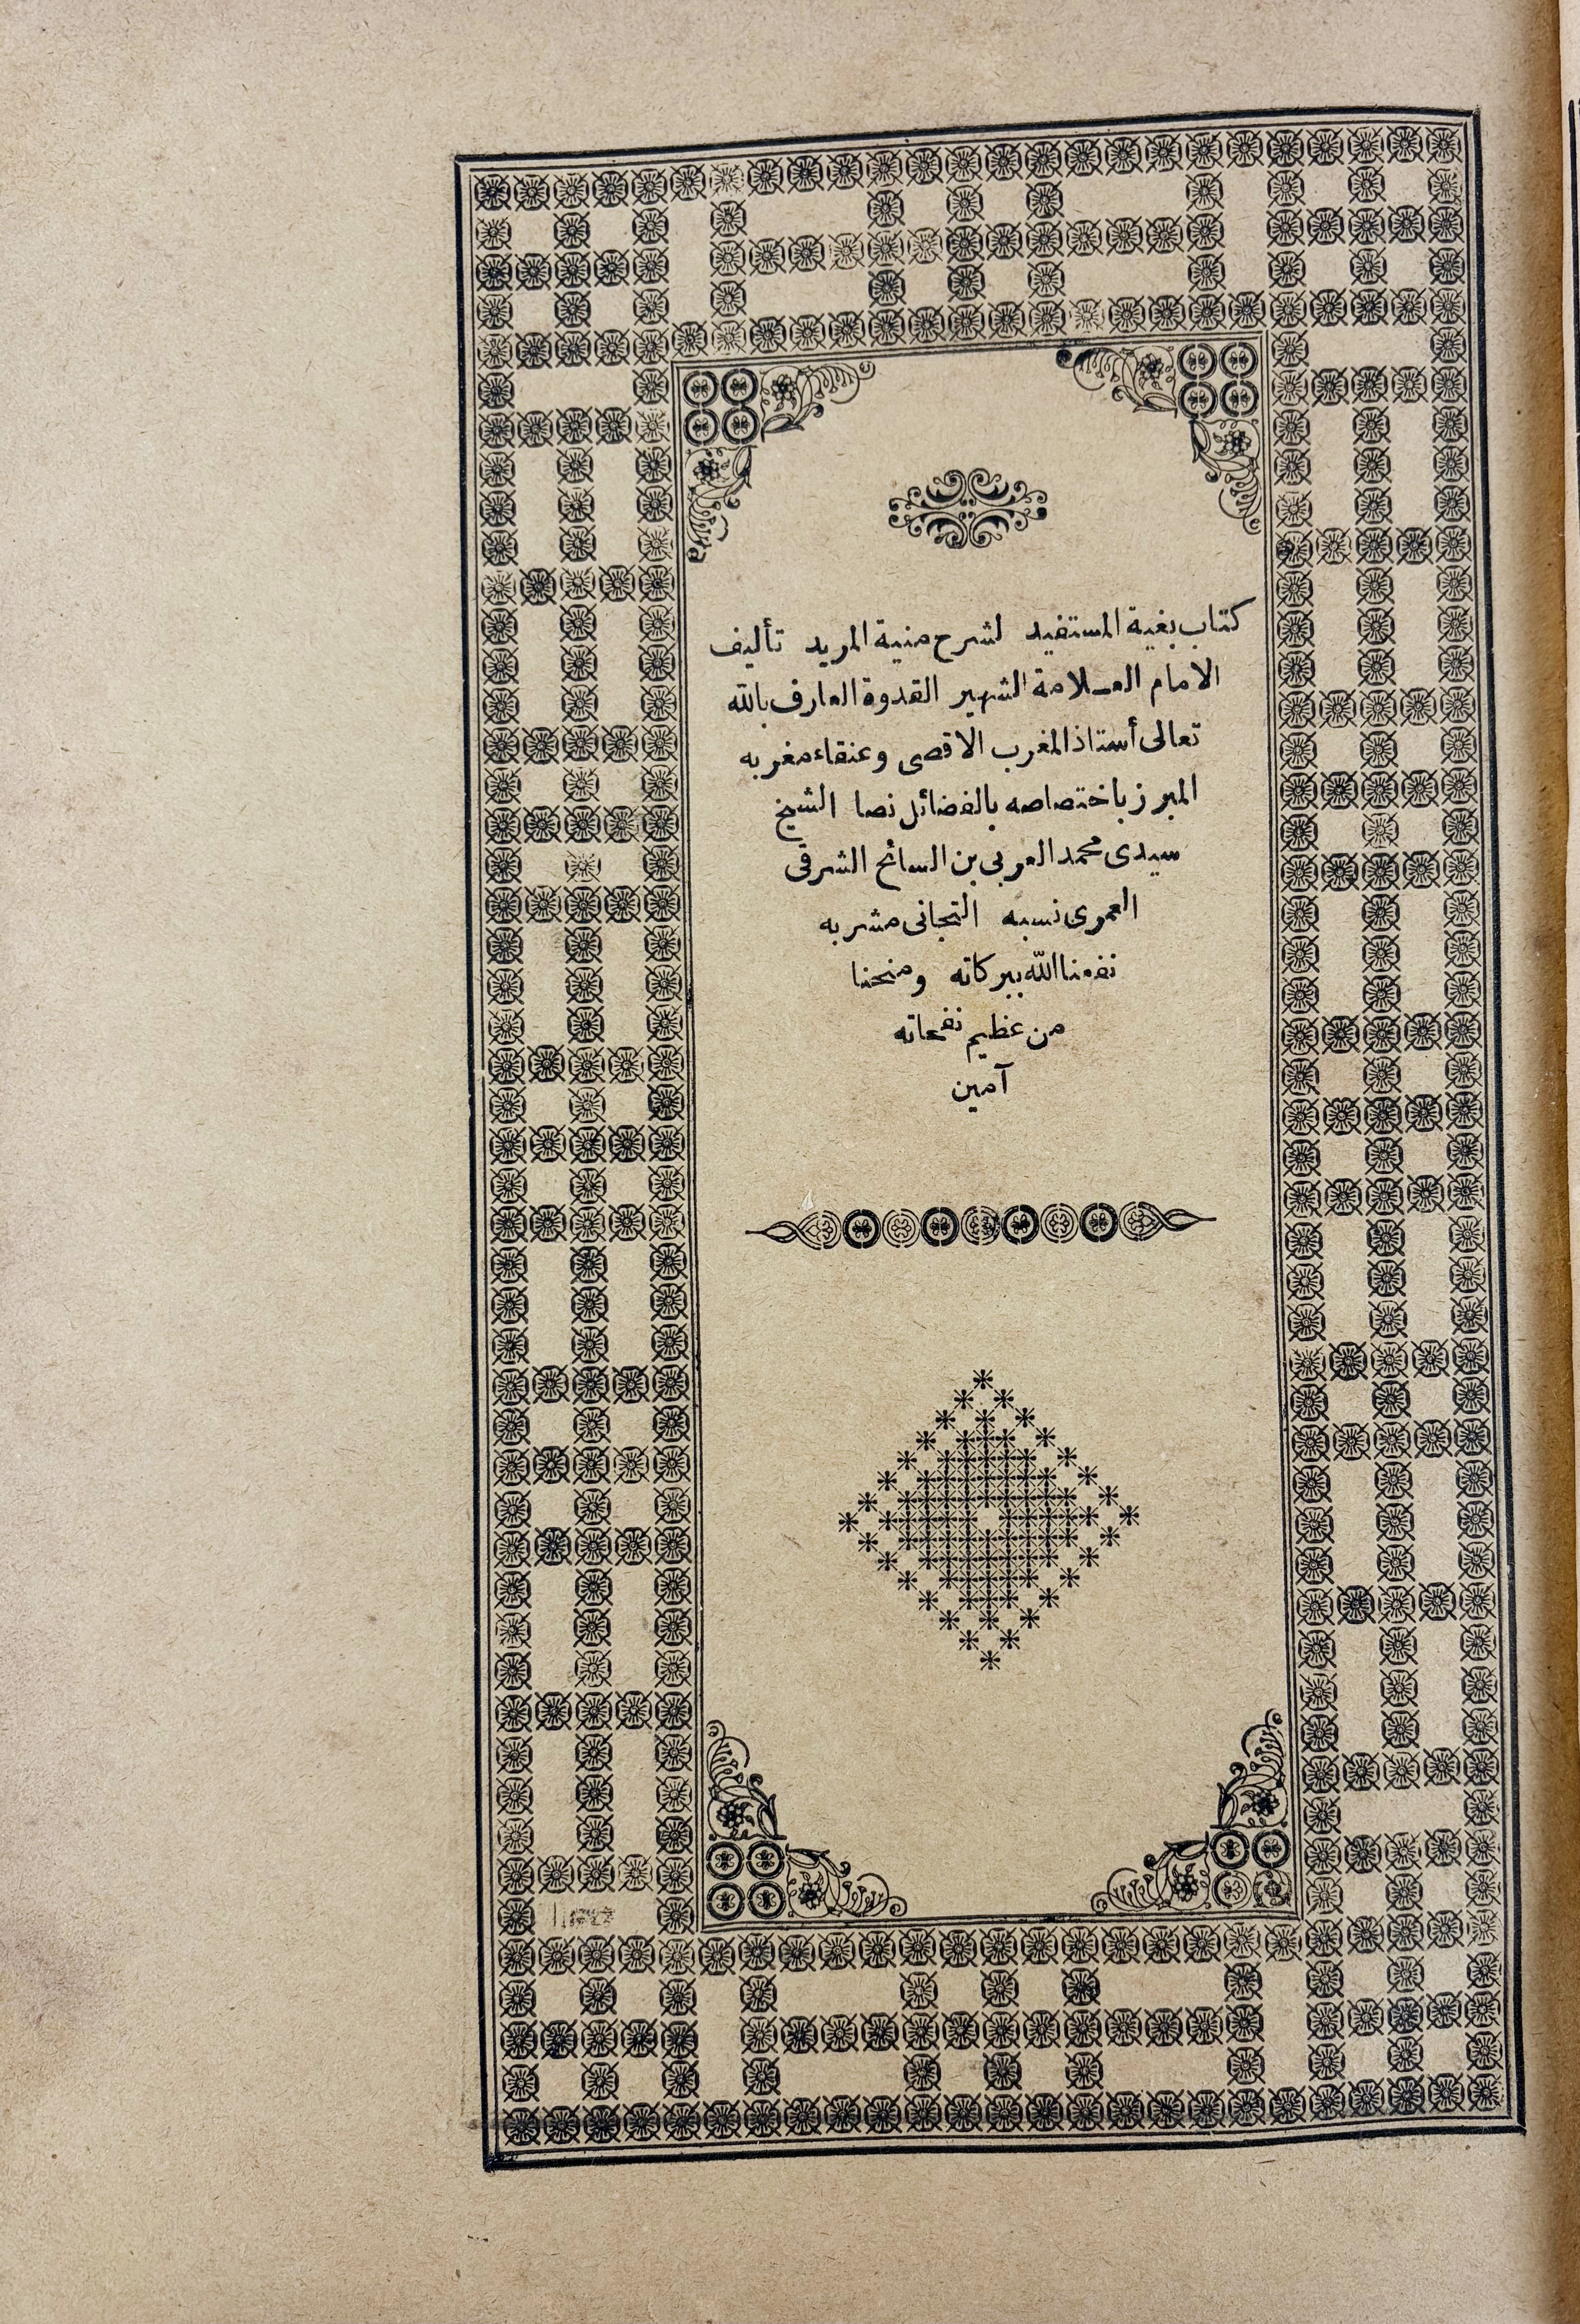 كتاب بغية المستفيد لشرح منية المريد تأليف
الامام العلامة الشهير القدوة العارف بالله
تعالى أستاذ المغرب الاقصى وعنقاء مغربه
المبرز باختصاصه بالفضائل نصا الشيخ
سيدى محمد العربى بن السائح الشرقى
العمرى نسبه التجانى مشربه
نفعنا الله ببركاته ومنحنا
من عظيم نفحاته
آمين